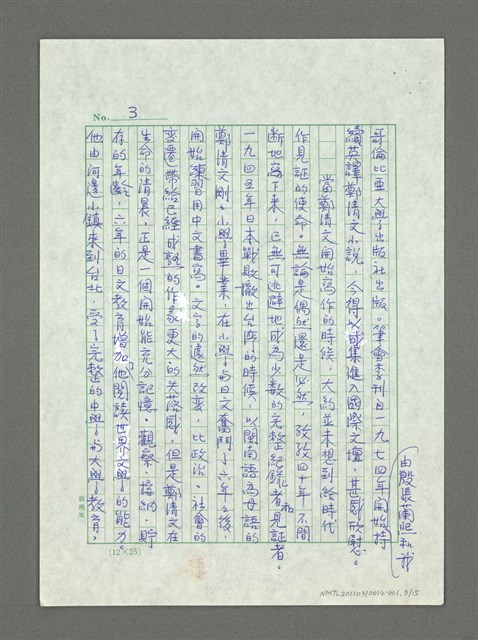 No. 3
由殷張蘭熙和我
哥倫比亞大學出版社出版。筆會季刊自一九七四年開始持
續英譯鄭清文小說，今得以成集進入國際文壇，甚感欣慰。
當鄭清文開始寫作的時候，大約並未想到給時代
作見証的使命。無論是偶然還是必然，孜孜四十年不間
斷地寫下來，已無可逃避地成為少數的完整紀錄者和見証者。
一九四五年日本戰敗撤出台灣的時候，以閩南語為母語的
鄭清文剛小學畢業，在小學與日文奮鬥了六年之後，
開始練習用中文書寫。文字的遽然改變，比政治、社會的
變遷帶給已經成熟的作家更大的失落感，但是鄭清文在
生命的清晨，正是一個開始能充分記憶、觀察、接納、貯
存的年齡，六年的日文教育增加他閱讀世界文學的能力。
他由河邊小鎮來到台北，受了完整的中學與大學教育，
(12×25)
NMTL20110310014-001, 3/15